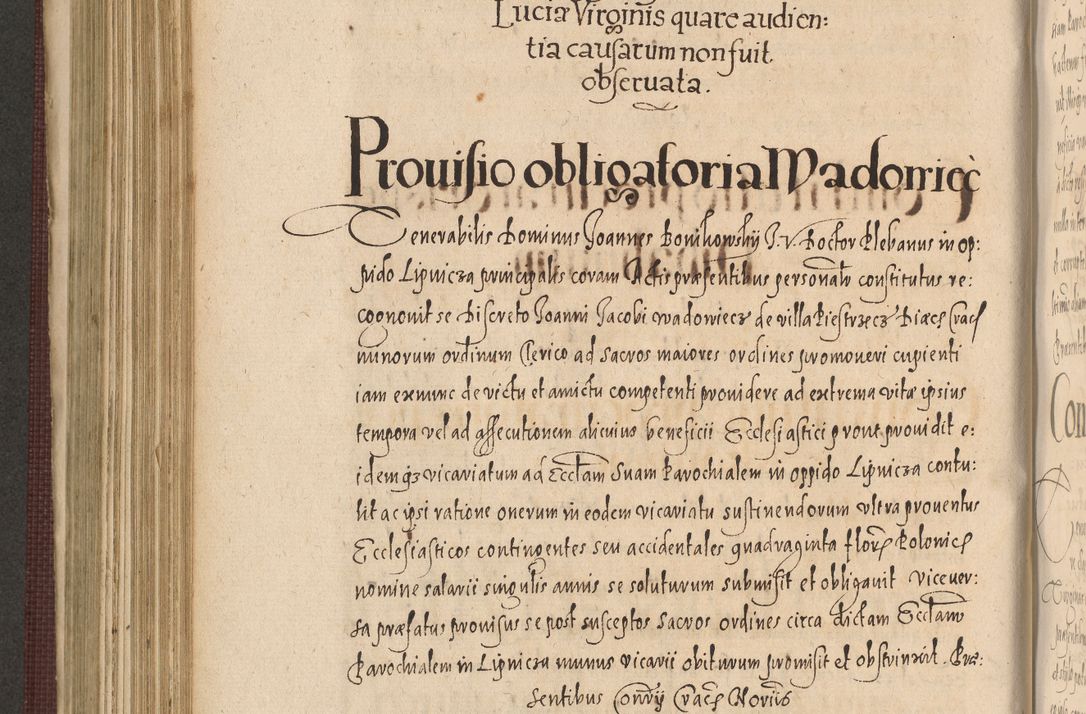 Luciæ Virginis quare audien:
tia causarum non fuit
observata.
Provisio obligatoria Wadowicẽ
Venerabilis Dominus Joannes Bonikowskij J. V. Doctor Plebanus in op:
pido Lipnicza principalis coram Actis præsentibus personalr̃ constitutus re:
cognovit se Discreto Joanni Jacobi wadowiecz de villa Piestrzecz Diæcẽ Cracẽ
minorum ordinum Clerico ad sacros maiores ordines promoveri cupienti
iam exnunc de victu et amictu competenti providere ad extrema vitæ ipsius
tempora vel ad assecutionem alicuius beneficii Ecclesiastici prout providit e:
idemq3 vicariatum ad Eccłam Suam Parochialem in oppido Lipnicza contu:
lit ac ipsi ratione onerum in eodem vicariatu sustinendorum ultra proventus
Ecclesiasticos contingentes seu accidentales quadraginta florẽ Polonicẽ
nomine salarii singulis annis se soluturum submisit et obligavit Vicever:
sa præfatus provisus se post susceptos Sacros ordines circa dictam Eccłam
Parochialem in Lipnicza munus vicarii obiturum promisit et obstrinxit. Præ:
sentibus Conrr̃ij Cracẽ Noviis